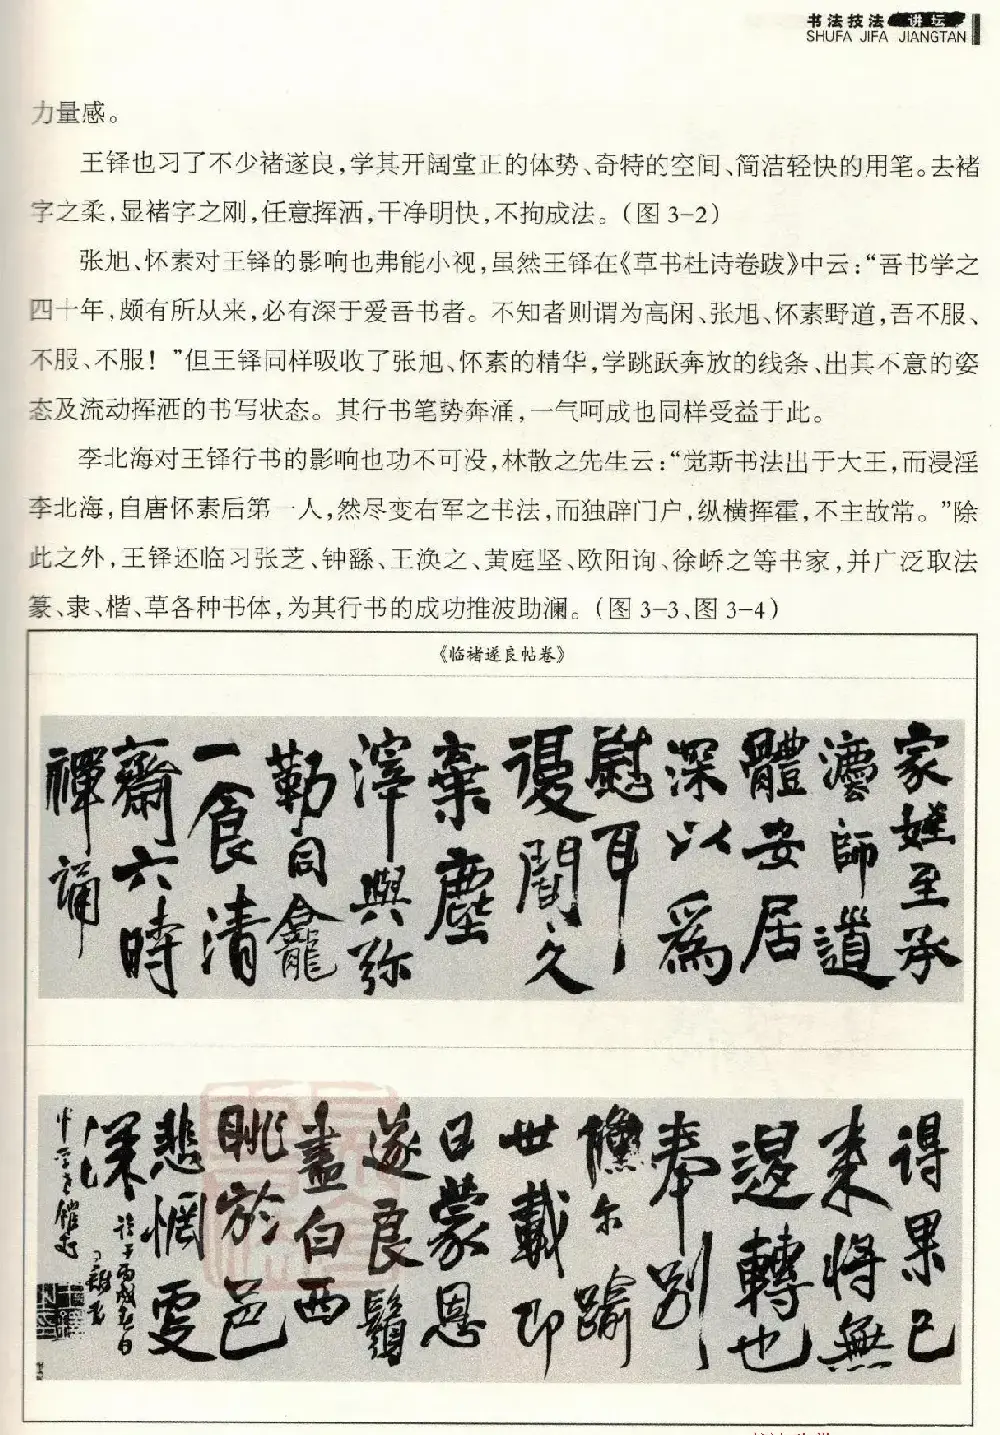 书法技法 讲坛
SHUFA JIFA JIANGTAN
力量感。
王铎也习了不少褚遂良,学其开阔堂正的体势、奇特的空间、简洁轻快的用笔。去褚
字之柔,显褚字之刚,任意挥洒,干净明快,不拘成法。(图 3-2)
张旭、怀素对王铎的影响也弗能小视,虽然王铎在《草书杜诗卷跋》中云:“吾书学之
四十年,颇有所从来,必有深于爱吾书者。不知者则谓为高闲、张旭、怀素野道,吾不服、
不服、不服!”但王铎同样吸收了张旭、怀素的精华,学跳跃奔放的线条、出其不意的姿
态及流动挥洒的书写状态。其行书笔势奔涌,一气呵成也同样受益于此。
李北海对王铎行书的影响也功不可没,林散之先生云:“觉斯书法出于大王,而浸淫
李北海,自唐怀素后第一人,然尽变右军之书法,而独辟门户,纵横挥霍,不主故常。”除
此之外,王铎还临习张芝、钟繇、王涣之、黄庭坚、欧阳询、徐峤之等书家,并广泛取法
篆、隶、楷、草各种书体,为其行书的成功推波助澜。(图 3-3、图 3-4)
《临褚遂良帖卷》
家姪至承
法師道
體安居
深以爲
慰耳
復聞久
棄塵
滓與弥
勒同龕
一食清
齋六時
禪誦
得果已
来將無
退轉也
奉别
儵尓踰
世載即
日蒙恩
遂良鬚
盡白西
眺於邑
悲惘更
深